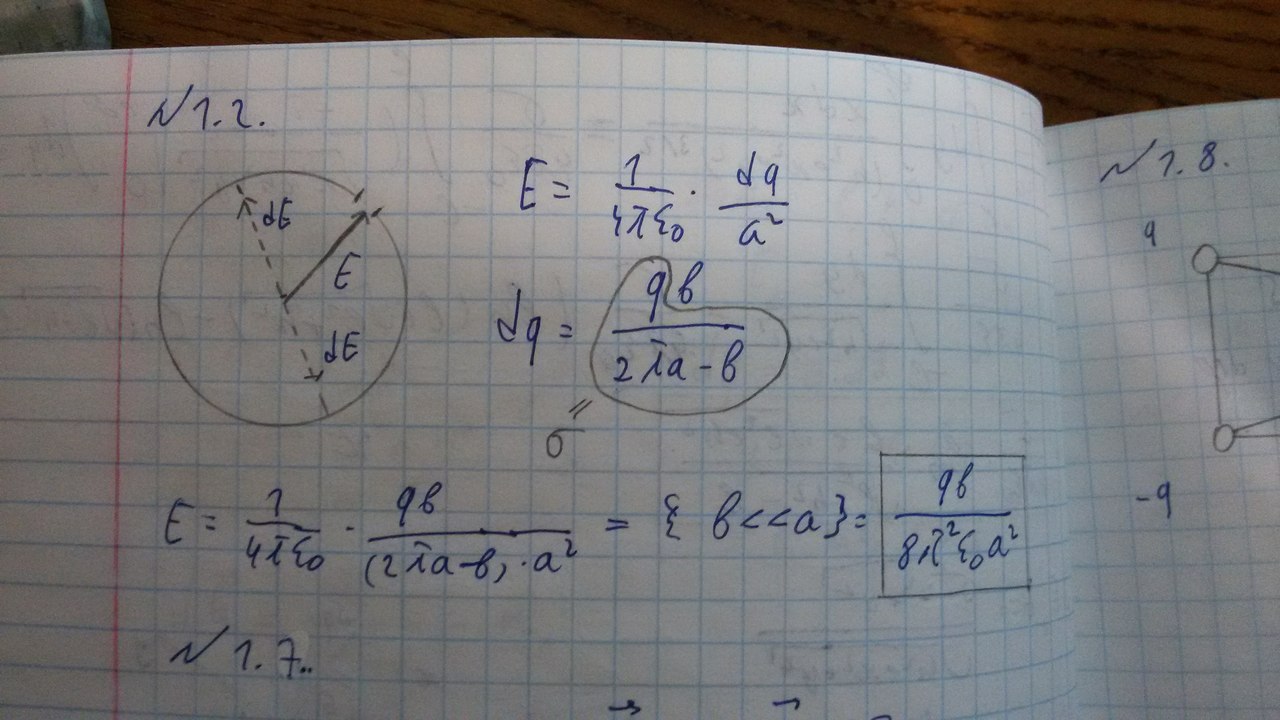 №1.2.
dE
E
dE
E = 1/4πε₀ · dq/a²
dq = qb/2πa-b
σ
E = 1/4πε₀ · qb/(2πa-b)·a² = { b<<a} = qb/8π²ε₀a²
№1.7.
№1.8.
q
-q